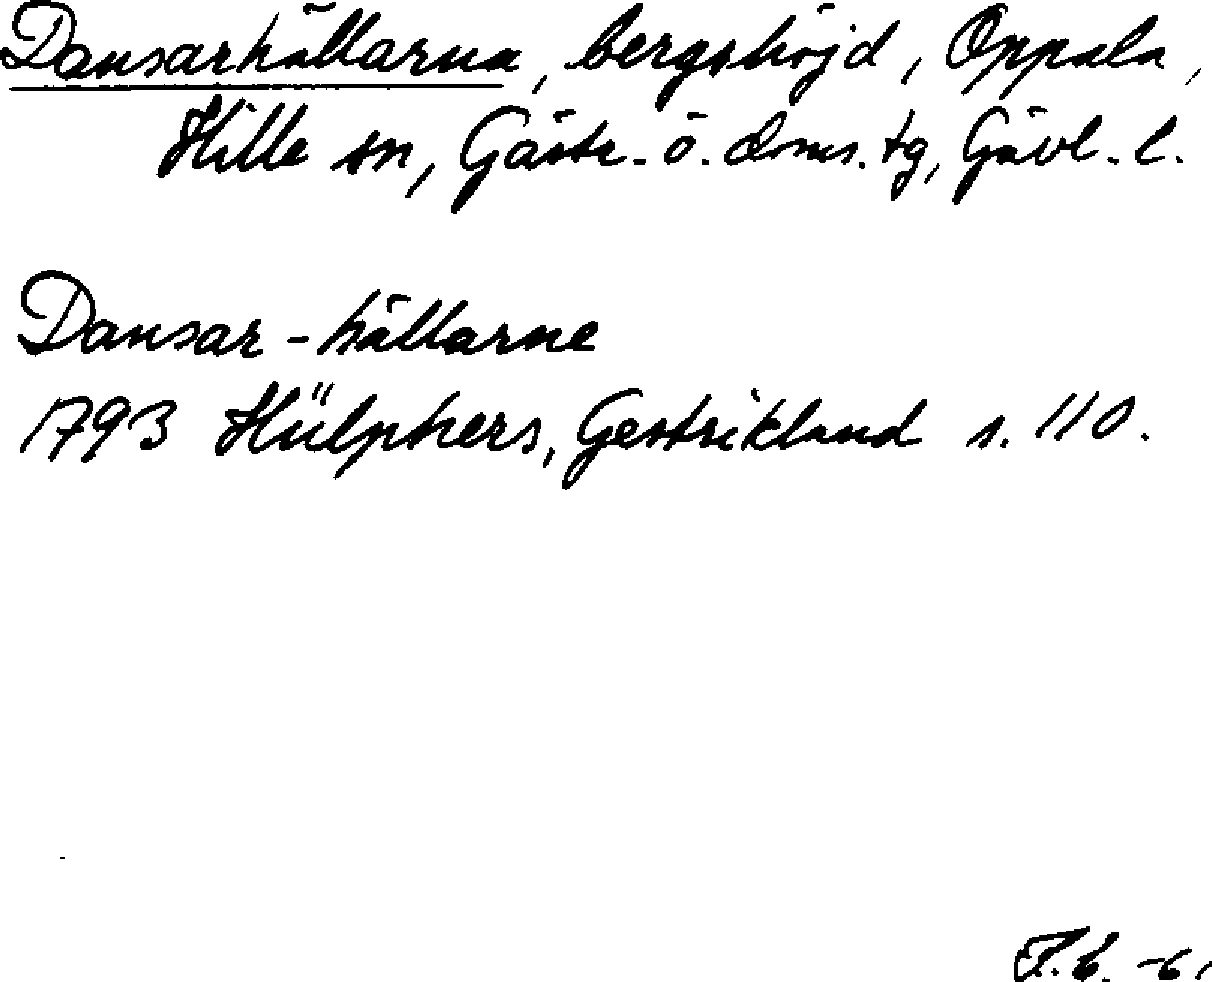 Dansarhällarna, bergshöjd, Oppala,
Hille sn, Gästr. ö. doms. tg, Gävl. l.
Dansar-hällarne
1793 Hülphers, Gestrikland s. 110.